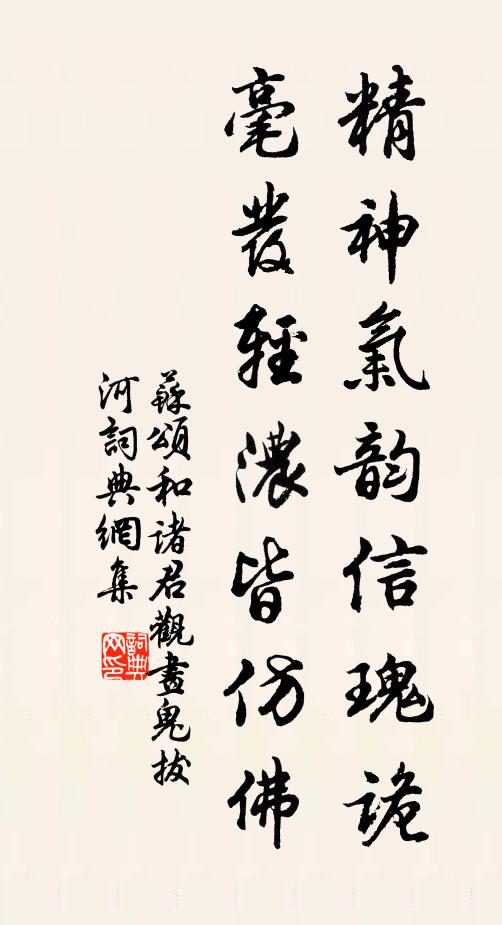 精神氣韵信瑰詭
毫發輕濃皆仿佛
蘇頌和諸君觀畫鬼拔
河詞典網集
詞典网印